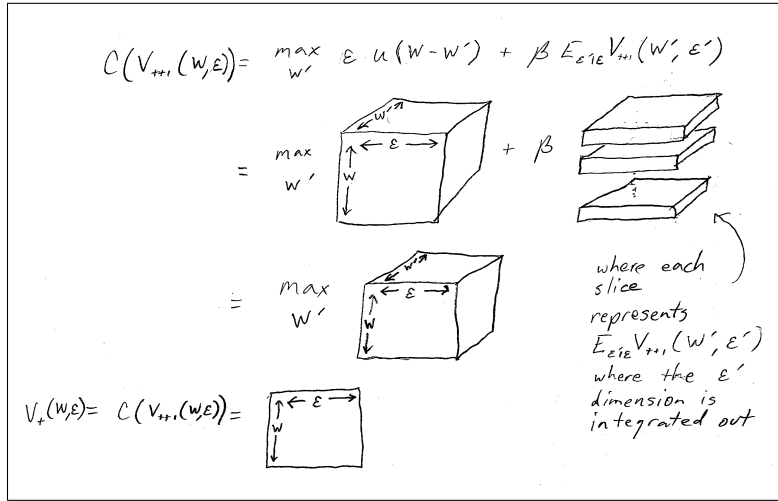 C(V_{t+1}(W,ε)) = max_{W'} ε u(W-W') + β E_{ε'|ε} V_{t+1}(W', ε')
W'
ε
W
= max_{W'} + β
W'
ε
W
= max_{W'}
where each
slice
represents
E_{ε'|ε} V_{t+1}(W', ε')
where the ε'
dimension is
integrated out
V_t(W,ε) = C(V_{t+1}(W,ε)) =
ε
W